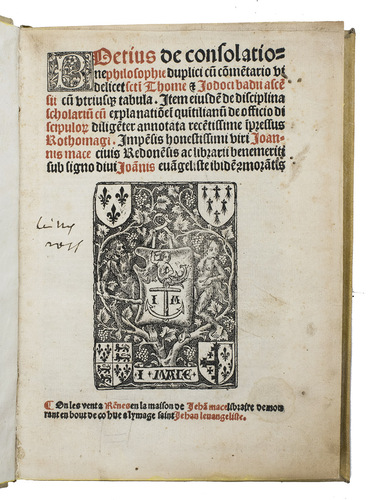 Boetius de consolatio-
ne philosophie duplici cũ cõmẽtario vi
delicet scti Thome & Jodoci badii ascẽ
sii cũ vtriusq; tabula. Item eiusdẽ de disciplina
scholariũ cũ explanatiõe ĩ quĩtilianũ de officio di
scipulor diligẽter annotata recẽtissime ĩpressus
Rothomagi. Impẽsis honestissimi viri Joan-
nis mace ciuis Redonẽsis ac librarii benemeriti
sub signo diui Joãnis euãgeliste ibidẽ morãntis
I M
I MACE
On les vent a Rẽnes en la maison de Jehã mace libraire demou
rant en bout de cohue a lymage saint Jehan leuangeliste.